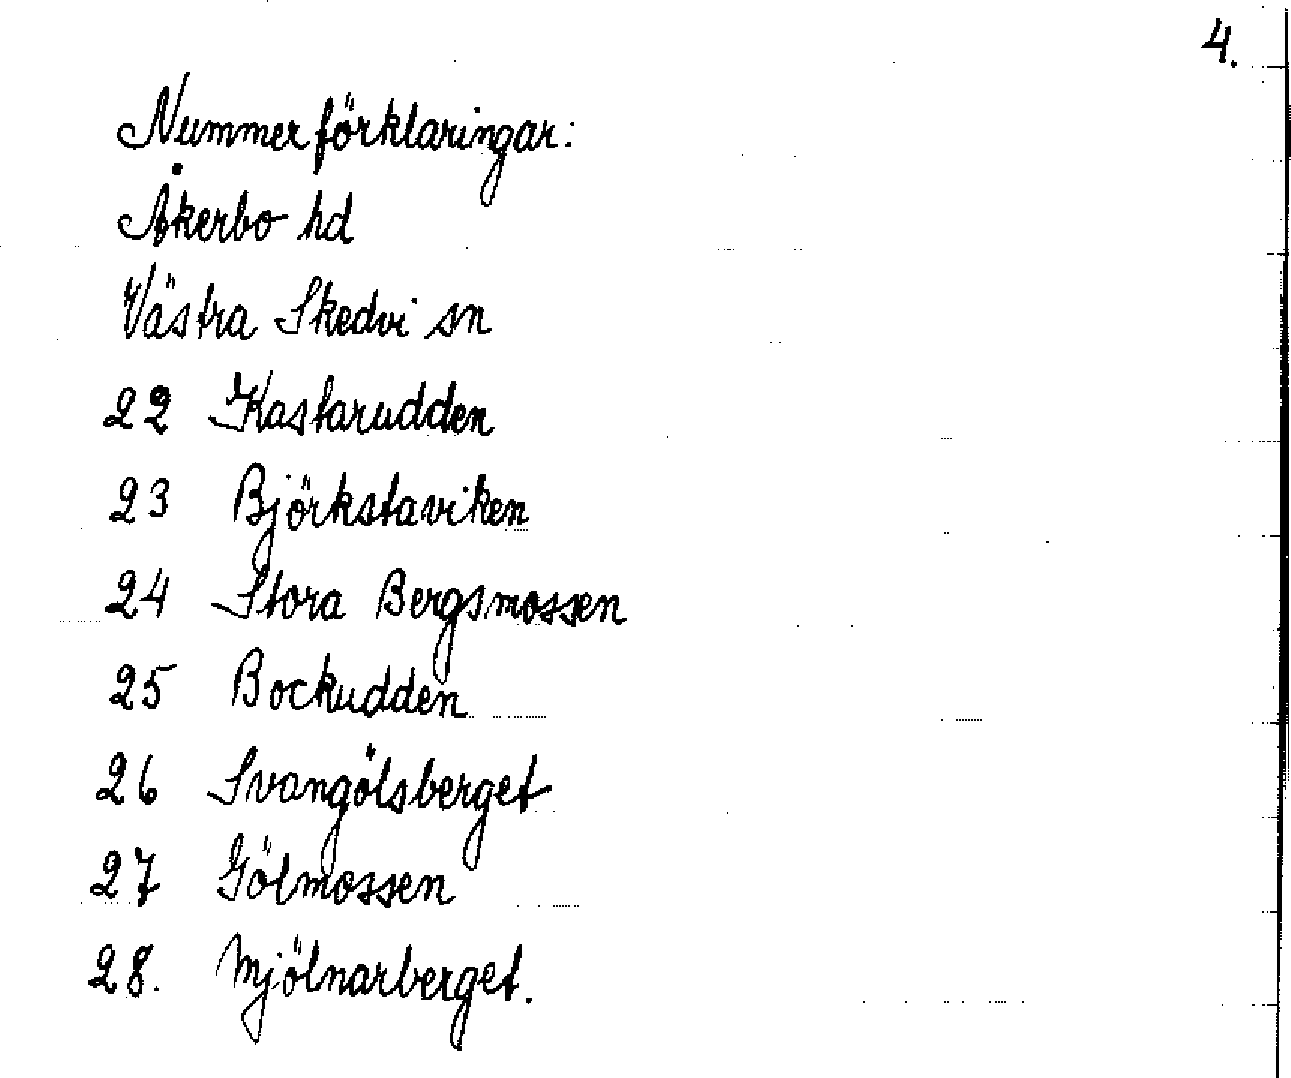 4.
Nummerförklaringar:
Åkerbo hd
Västra Skedvi sn
22 Kastarudden
23 Björkstaviken
24 Stora Bergsmossen
25 Bockudden
26 Svangölsberget
27 Gölmossen
28. Mjölnarberget.